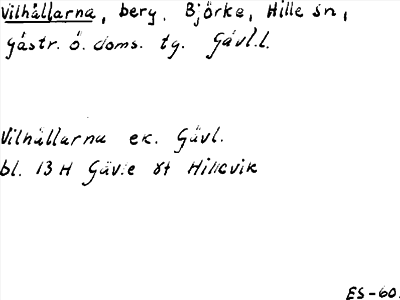 Vilhällarna, berg. Björke, Hille sn,
Gästr. ö. doms. tg. Gävl.l.
Vilhällarna ek. Gävl.
bl. 13 H Gävle öt Hillevik
ES-60.